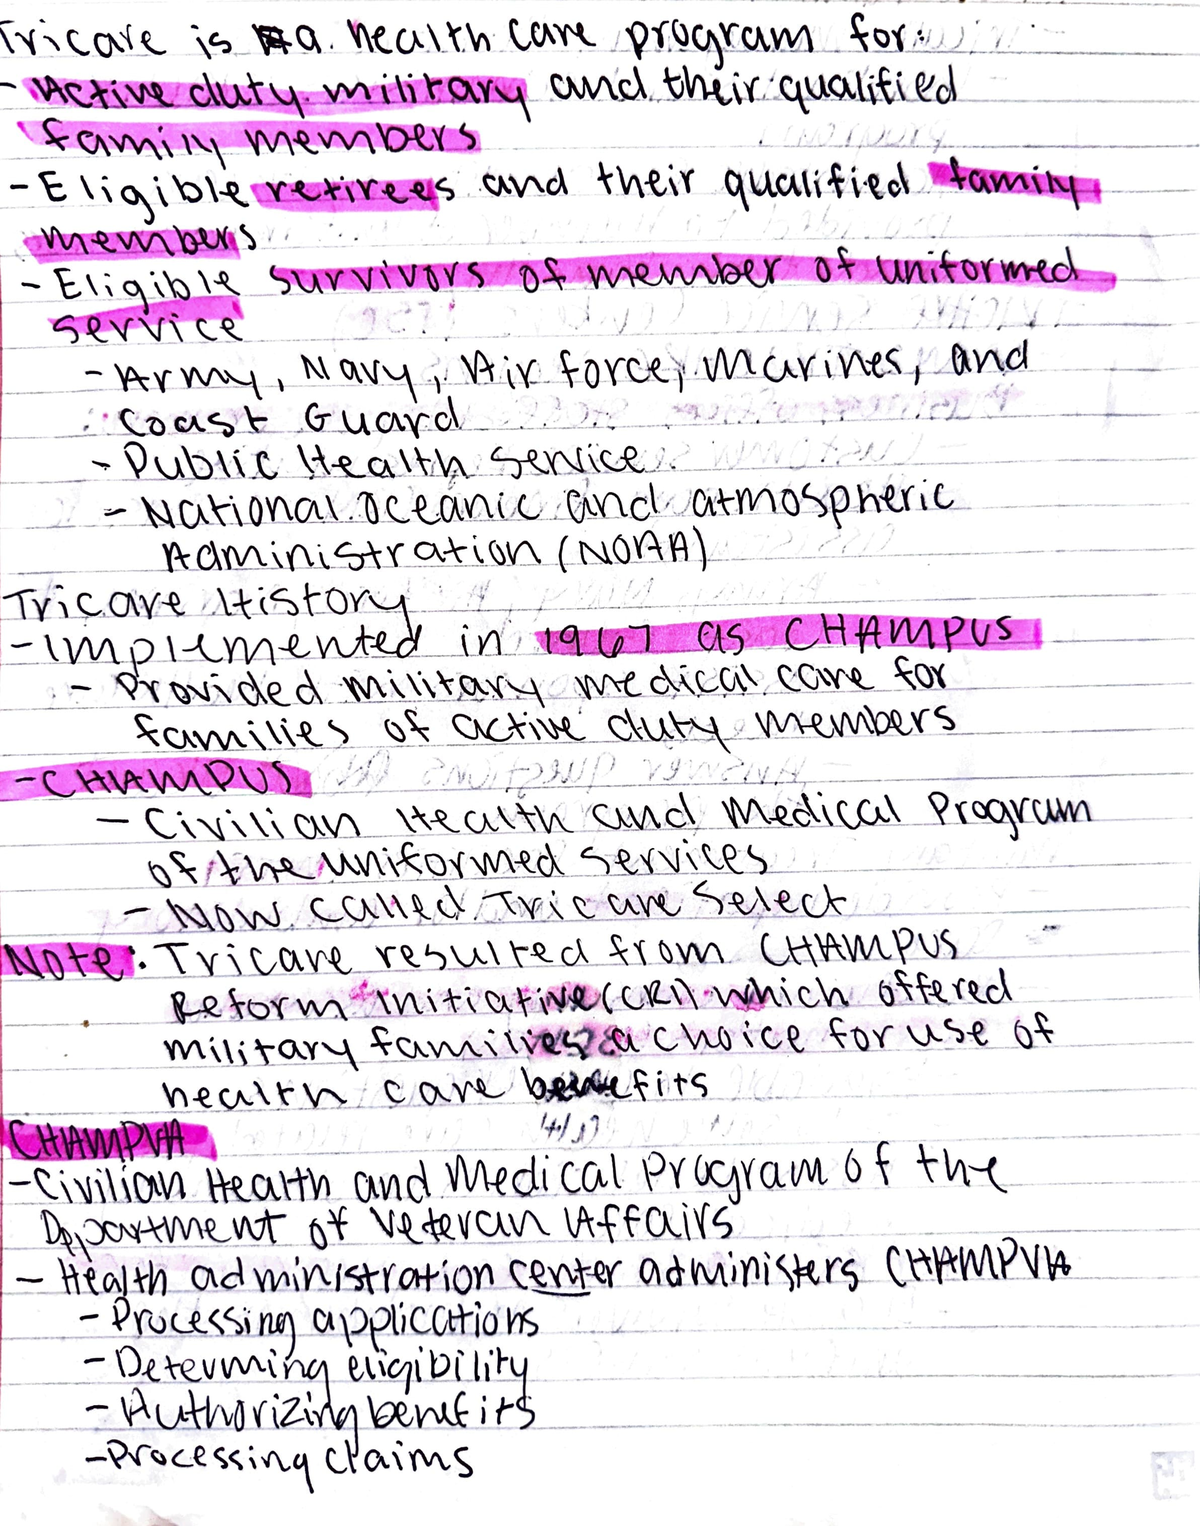 Tricare is a health care program for:
- Active duty military and their qualified
family members
- Eligible retirees and their qualified family
members
- Eligible survivors of member of uniformed
service
- Army, Navy, Air force, Marines, and
Coast Guard
- Public Health Service
- National Oceanic and atmospheric
Administration (NOAA)
Tricare History
- Implemented in 1967 as CHAMPUS
- Provided military medical care for
families of active duty members
- CHAMPUS
- Civilian Health and Medical Program
of the uniformed services
- Now called Tricare Select
Note: Tricare resulted from CHAMPUS
Reform initiative (CRI) which offered
military families a choice for use of
health care benefits
CHAMPVA
- Civilian Health and Medical Program of the
Department of Veteran Affairs
- Health administration center administers CHAMPVA
- Processing applications
- Determing eligibility
- Authorizing benefits
- Processing claims